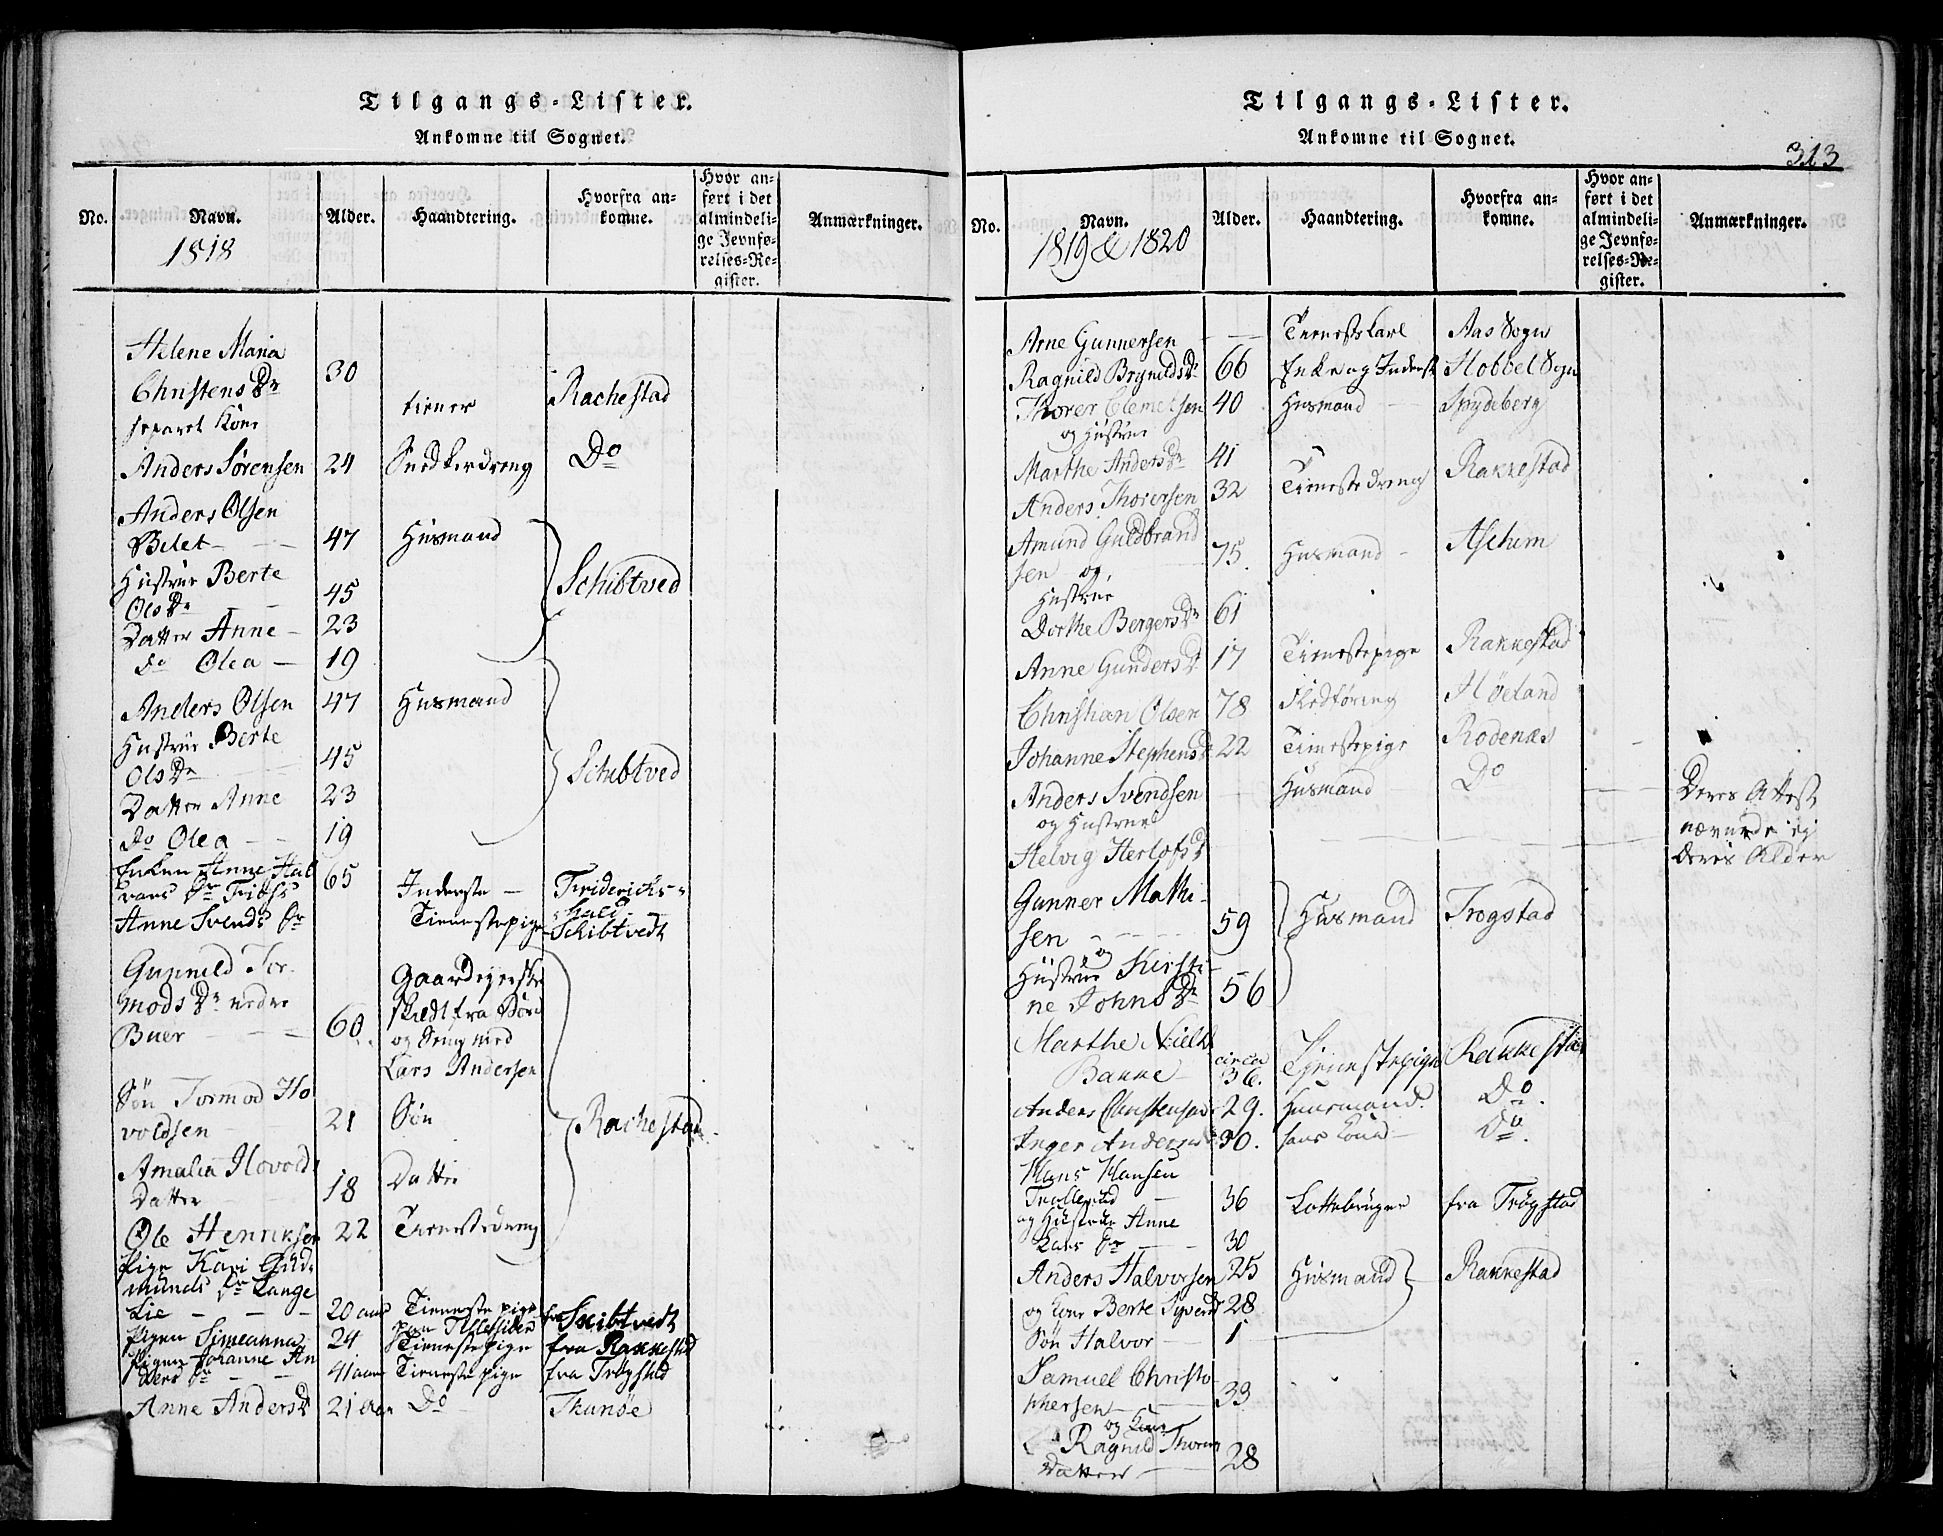 Tilgangs-Lister.
Ankomne til Sognet.
No.
Navn.
1818
Alder.
Haandtering.
Hvorfra an-
komne.
Hvor an-
ført i det
almindeli-
ge Jevnfø-
relses-Re-
gister.
Anmærkninger.
Helene Maria
Christens Dr 30
separet Kone tiener Rachestad
Anders Sørensen 24 Snedkerdreng Do
Anders Olsen
Bilet 47 Husmand
Hustrue Berte
Ols Dr 45 Schibtved
Datter Anne 23
do Olea 19
Anders Olsen 47 Husmand
Hustrue Berte
Ols Dr 45 Schibtved
Datter Anne 23
do Olea 19
Enken Anne Hal
vors Dr 65 Inderste Friderichs-
hald
Anne Svends Dr Tienestepige Schibtvedt
Gunnild Tor
mods Dr nedre Gaardejerske
Buer 60 skildt fra
og Seng med
Lars Andersen
Søn Tormod Ho
voldsen 21 Søn Rachestad
Amalia Hovolds
Datter 18 Datter
Ole Henriksen 22 Tienestedreng
Pige Kari Gud-
munds Dr Lange
Lie 20 aar Tieneste pige fra Skibtvedt
Pigen Simeanna 24 Tieneste pige fra Rakkestad
Pigen Johanne An
ders Dr 41 aar Tieneste pige fra Trøgstad
Anne Anders D 21 aar Do Thunøe
Tilgangs-Lister.
Ankomne til Sognet.
313
No.
Navn.
1819 & 1820
Alder.
Haandtering.
Hvorfra an-
komne.
Hvor an-
ført i det
almindeli-
ge Jevnfø-
relses-Re-
gister.
Anmærkninger.
Arne Gunnersen Tienestekarl Aas Sogn
Ragnild Brynilds Dr 66 Enke og Inderst Hobbel Sogn
Thorer Clemetsen 40 Husmand Spydeberg
og Hustrue
Marthe Anders Dr 41
Anders Thorersen 32 Tienestedreng Rakkestad
Amund Guldbrand
sen og 75 Husmand Aschim
Hustrue
Dorthe Bergers Dr 61
Anne Gunders D 17 Tienestepige Rakkestad
Christian Olsen 78 Fledføring Høland
Johanne Stephens D 22 Tienestepige Rodenæs
Anders Svendsen Husmand Do Deres Attest
og Hustrue nævnede ej
Helvig Herlofs D deres Alder
Gunner Mathi-
sen 59 Husmand Trogstad
og
Hustrue Kirsti-
ne Johns Dr 56
Marthe Niels circa
Bakke 36. Tjenestepige Rakkestad
Anders Christensen 29. Huusmand. Do.
Inger Anders 30. hans Kone Do.
Hans Hansen
Trollerud 36 Lottebruger fra Trøgstad
og Hustrue Anne
Lars Dr 30
Anders Halvorsen 25 Husmand Rakkestad
og Kone Berte Syverd 28
Søn Halvor 1
Samuel Christo
phersen 33
og Kone
Ragnild Thorer
Datter 28